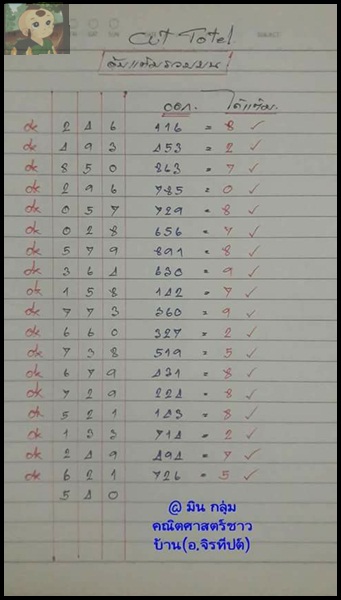 Cut Totel
ดับแต้มรวมบน
ออก. ได้แต้ม.
ok 2 4 6 116 = 8 ✓
ok 4 9 3 453 = 2 ✓
ok 8 5 0 863 = 7 ✓
ok 2 9 6 785 = 0 ✓
ok 0 5 7 729 = 8 ✓
ok 0 2 8 656 = 7 ✓
ok 5 7 9 891 = 8 ✓
ok 3 6 4 630 = 9 ✓
ok 1 5 8 142 = 7 ✓
ok 7 7 3 360 = 9 ✓
ok 6 6 0 327 = 2 ✓
ok 7 3 8 519 = 5 ✓
ok 6 7 9 431 = 8 ✓
ok 7 2 9 224 = 8 ✓
ok 5 2 1 143 = 8 ✓
ok 1 3 3 714 = 2 ✓
ok 2 4 9 494 = 7 ✓
ok 6 2 1 726 = 5 ✓
5 4 0
@ มิน กลุ่ม
คณิตศาสตร์ชาว
บ้าน(อ.จิรทีปต์)